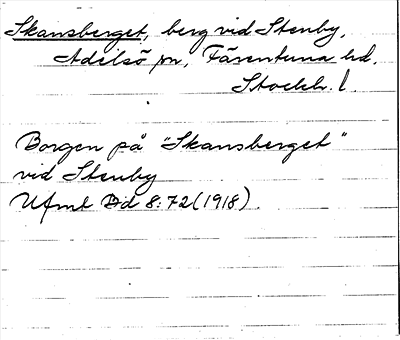 Skansberget, berg vid Stenby,
Adelsö sn, Färentuna hd,
Stockh. l.
Borgen på "Skansberget"
vid Stenby
Ufmt Bd 8:72 (1918).